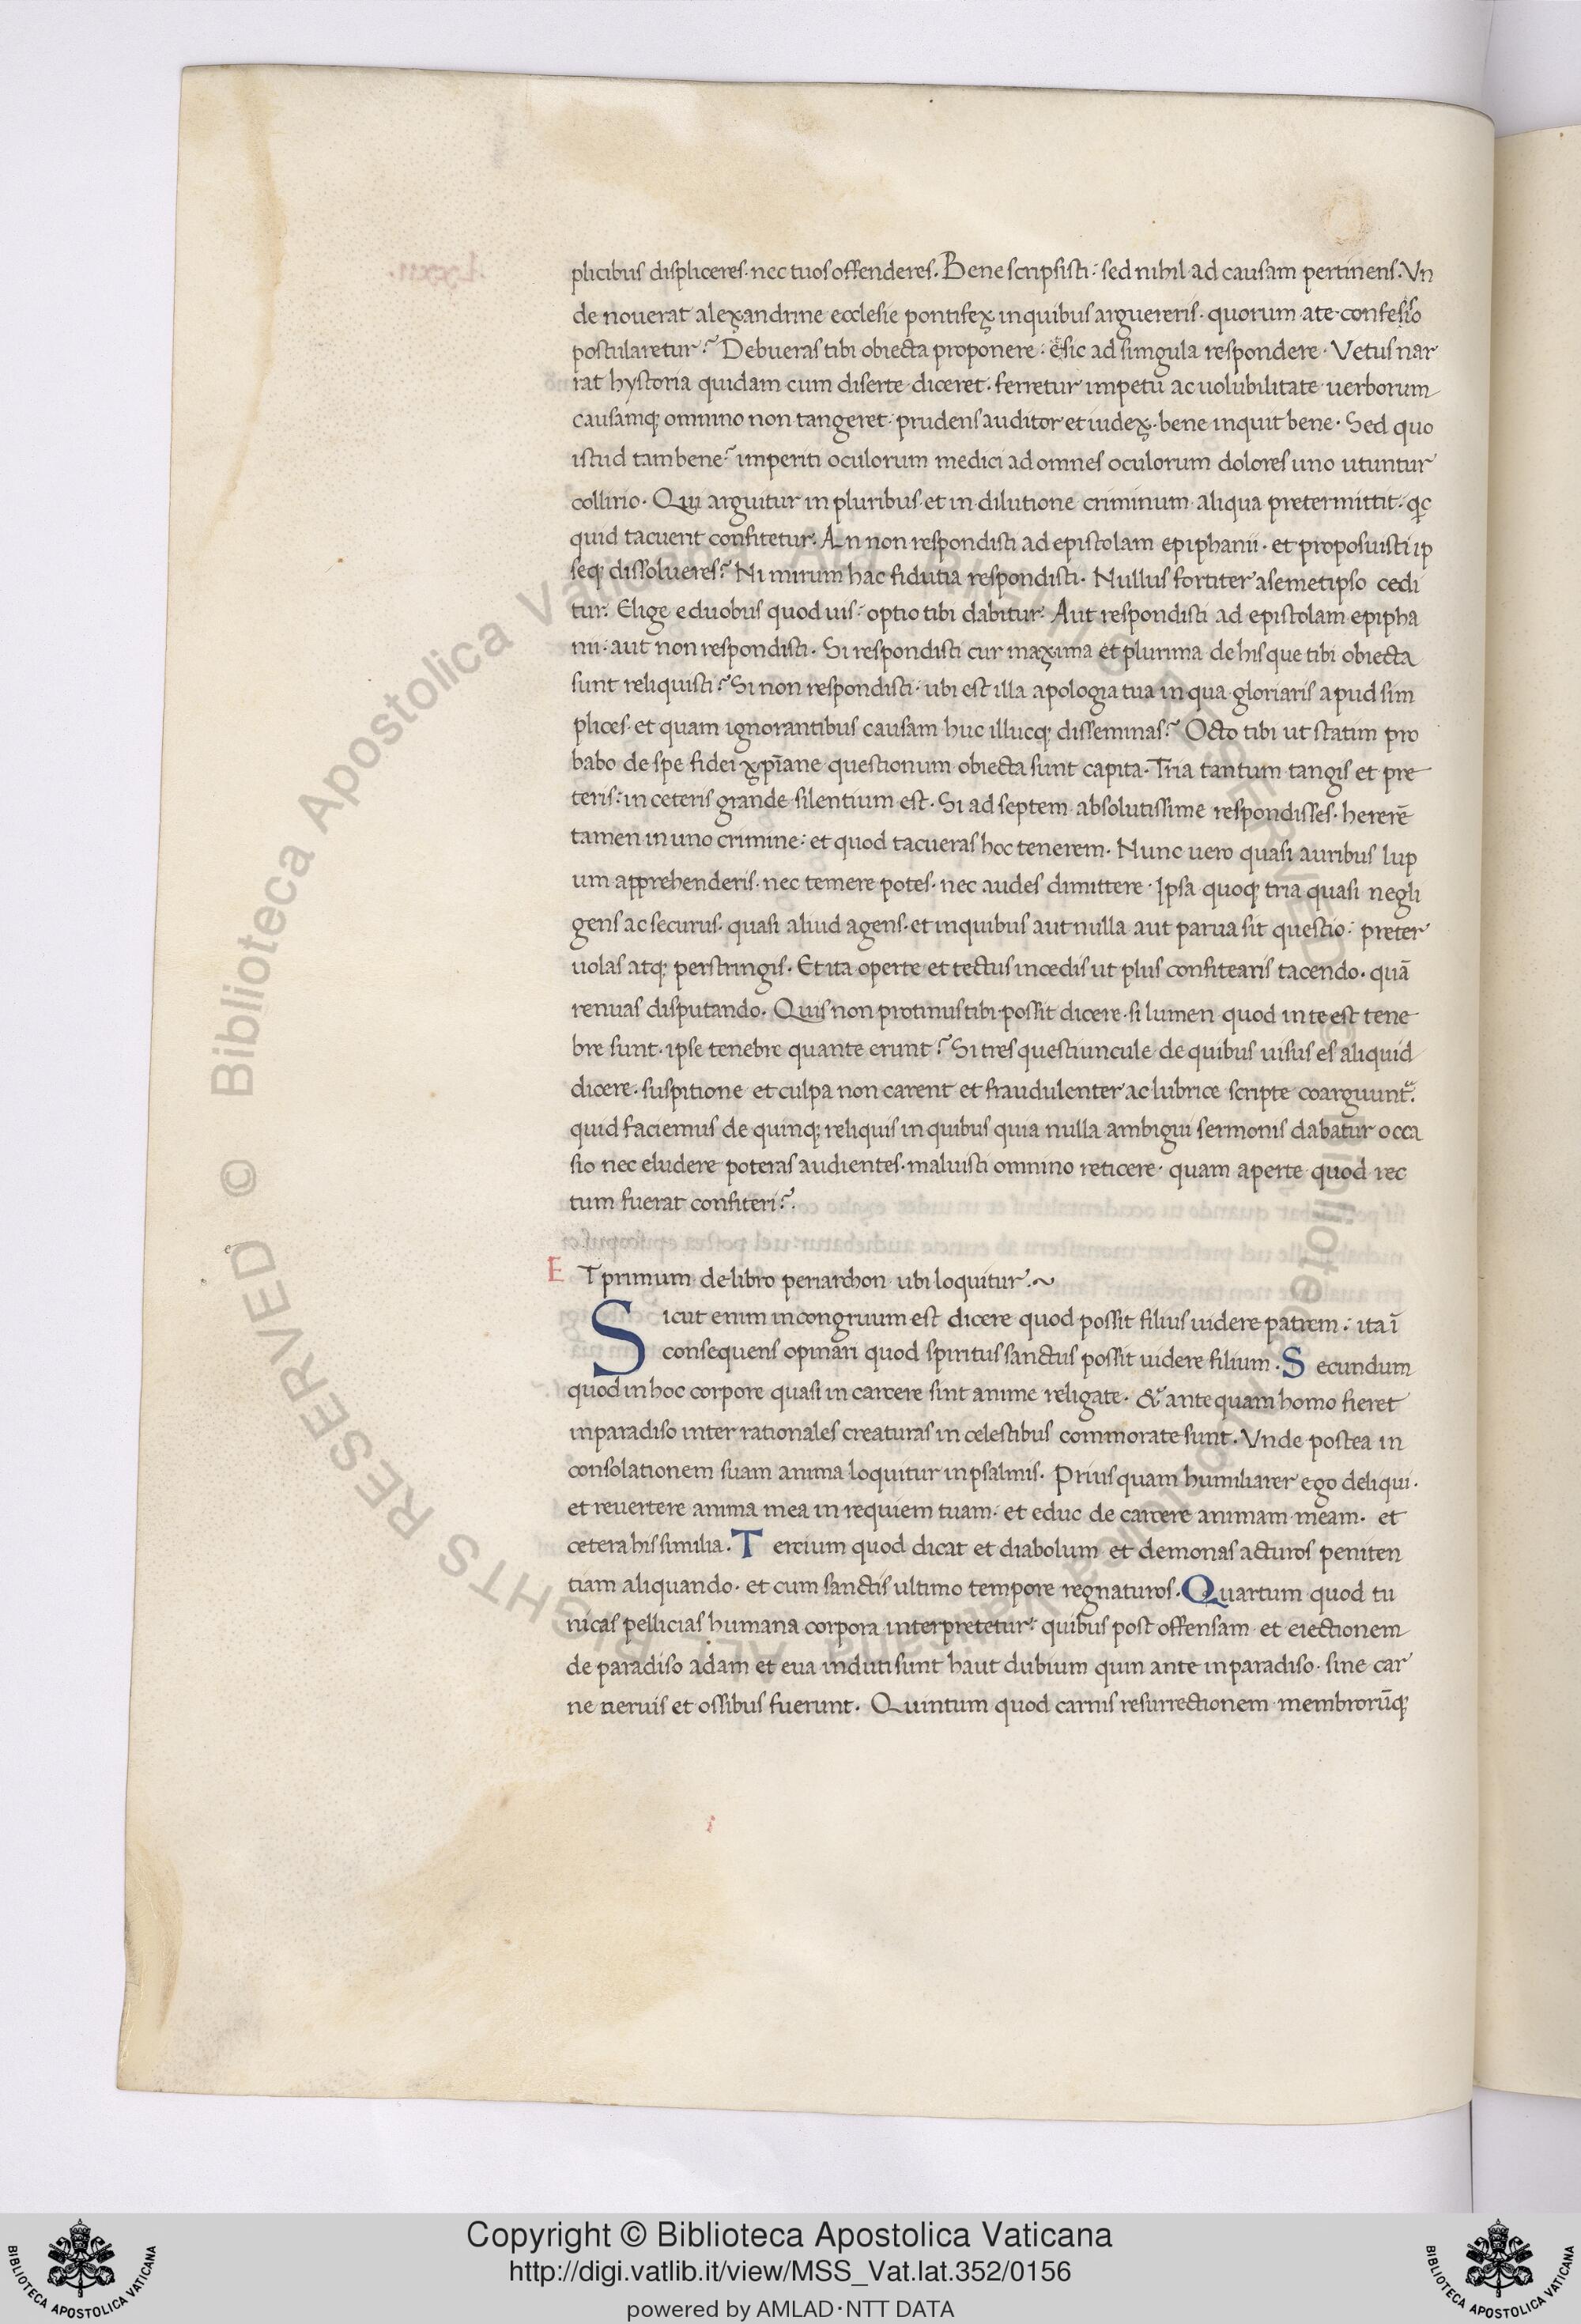 plicibus displiceres· nec tuos offenderes. Bene scripsisti: sed nihil ad causam pertinens. Vn
de nouerat alexandrine ecclesie pontifex in quibus arguereris· quorum a te confessio
postularetur? Debueras tibi obiecta proponere· & sic ad singula respondere· Vetus nar
rat hystoria quidam cum diserte diceret· ferretur impetu ac uolubilitate uerborum
causamq; omnino non tangeret: prudens auditor et iudex· bene inquit bene· Sed quo
istud tam bene? imperiti oculorum medici ad omnes oculorum dolores uno utuntur
collirio· Qui arguitur in pluribus· et in dilutione criminum aliqua pretermittit: qc
quid tacuerit confitetur. An non respondisti ad epistolam epiphanii· et proposuisti ip
seq; dissolueres? Ni mirum hac fidutia respondisti· Nullus fortiter a semetipso cedi
tur. Elige e duobus quod uis: optio tibi dabitur: Aut respondisti ad epistolam epipha
nii: aut non respondisti· Si respondisti cur maxima et plurima de his que tibi obiecta
sunt reliquisti? Si non respondisti· ubi est illa apologia tua in qua gloriaris apud sim
plices· et quam ignorantibus causam huc illucq; disseminas? Octo tibi ut statim pro
babo de spe fidei xp̄iane questionum obiecta sunt capita· Tria tantum tangis et pre
teris: in ceteris grande silentium est· Si ad septem absolutissime respondisses· hererē
tamen in uno crimine: et quod tacueras hoc tenerem· Nunc uero quasi auribus lup
um apprehenderis· nec temere potes· nec audes dimittere· Ipsa quoq; tria quasi negli
gens ac securus· quasi aliud agens· et in quibus aut nulla aut parua sit questio: preter
uolas atq; perstringis· Et ita operte et tectus incedis ut plus confitearis tacendo· quā
renuas disputando· Quis non protinus tibi possit dicere· si lumen quod in te est tene
bre sunt· ipse tenebre quante erunt? Si tres questiuncule de quibus uisus es aliquid
dicere· suspitione et culpa non carent et fraudulenter ac lubrice scripte coarguunt͛:
quid faciemus de quinq; reliquis in quibus quia nulla ambigui sermonis dabatur occa
sio nec eludere poteras audientes· maluisti omnino reticere· quam aperte quod rec
tum fuerat confiteri?
E T primum de libro periarchon ubi loquitur·~
Sicut enim incongruum est dicere quod possit filius uidere patrem: ita ī
consequens opinari quod spiritus sanctus possit uidere filium. Secundum
quod in hoc corpore quasi in carcere sint anime religate· & ante quam homo fieret
in paradiso inter rationales creaturas in celestibus commorate sunt. Vnde postea in
consolationem suam anima loquitur in psalmis· Prius quam humiliarer ego deliqui·
et reuertere anima mea in requiem tuam· et educ de carcere animam meam· et
cetera his similia. Tercium quod dicat et diabolum et demonas acturos peniten
tiam aliquando· et cum sanctis ultimo tempore regnaturos. Quartum quod tu
nicas pellicias humana corpora interpretetur: quibus post offensam et eiectionem
de paradiso adam et eua induti sunt haut dubium quin ante in paradiso· sine car
ne neruis et ossibus fuerunt· Quintum quod carnis resurrectionem membrorūq;
Copyright © Biblioteca Apostolica Vaticana
http://digi.vatlib.it/view/MSS_Vat.lat.352/0156
powered by AMLAD·NTT DATA